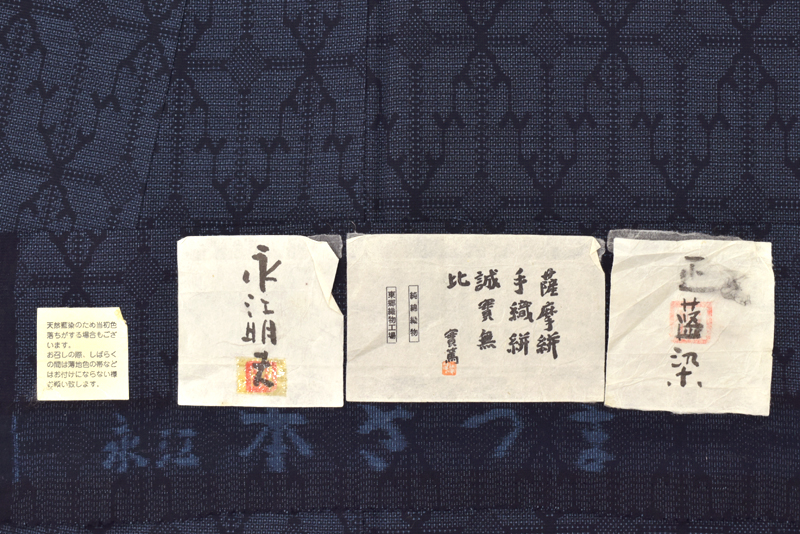 天然藍染のため当初色
落ちがする場合もござ
います。
お召しの際、しばらく
の間は薄地色の帯など
はお付けにならない様
お願い致します。
永江明夫
薩摩絣
手織絣
誠實無
比
實篤
純綿織物
東郷織物工場
正藍染
永江 本さつま